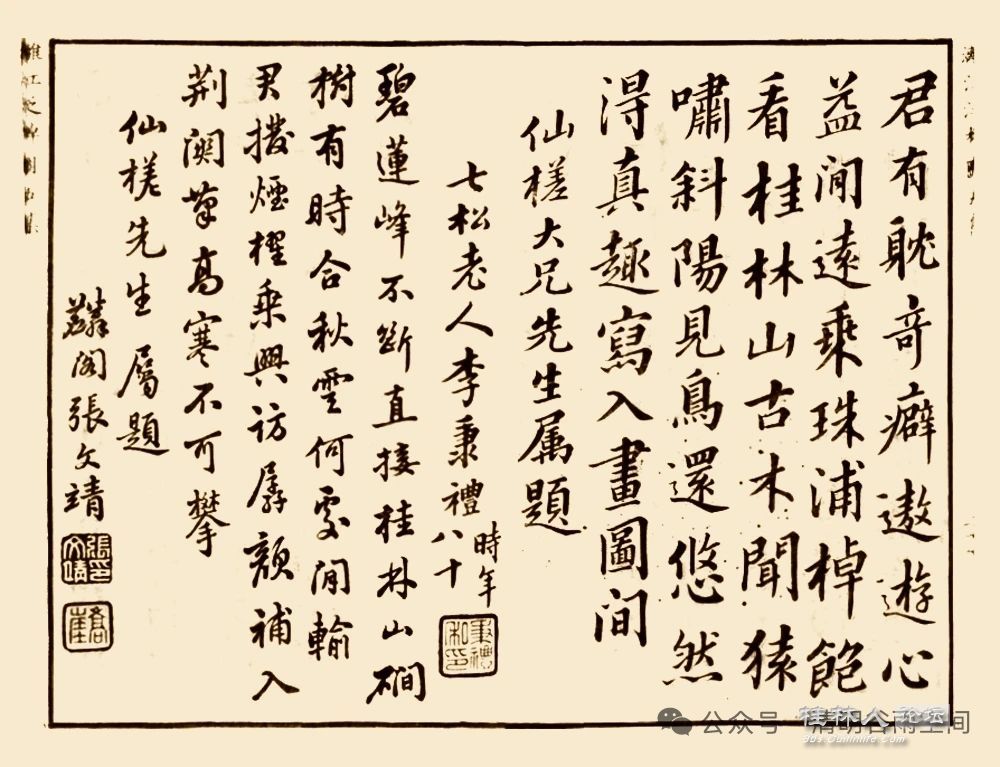 君有耽奇癖遨遊心
益閒遠乘珠浦棹飽
看桂林山古木聞猿
嘯斜陽見鳥還悠然
淂真趣寫入畫圖間
仙槎大兄先生属題
七松老人李秉禮時年八十
碧蓮峰不斷直接桂林山磵
樹有時合秋雲何處閒輸
君撥煙櫂乘興訪孱顏補入
荆関筆高寒不可攀
仙槎先生屬題
麟閣張文靖
公众号
桂林人论坛
bbs.Guilinlife.com